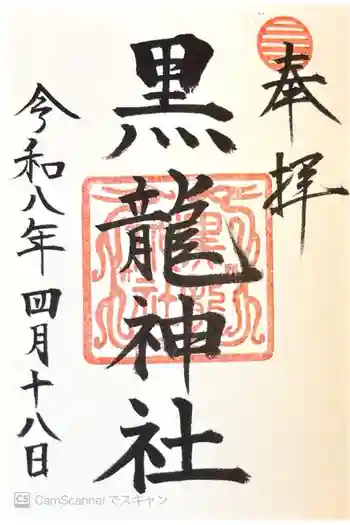 奉拝
黒龍神社
令和八年四月十八日
CS CamScannerでスキャン